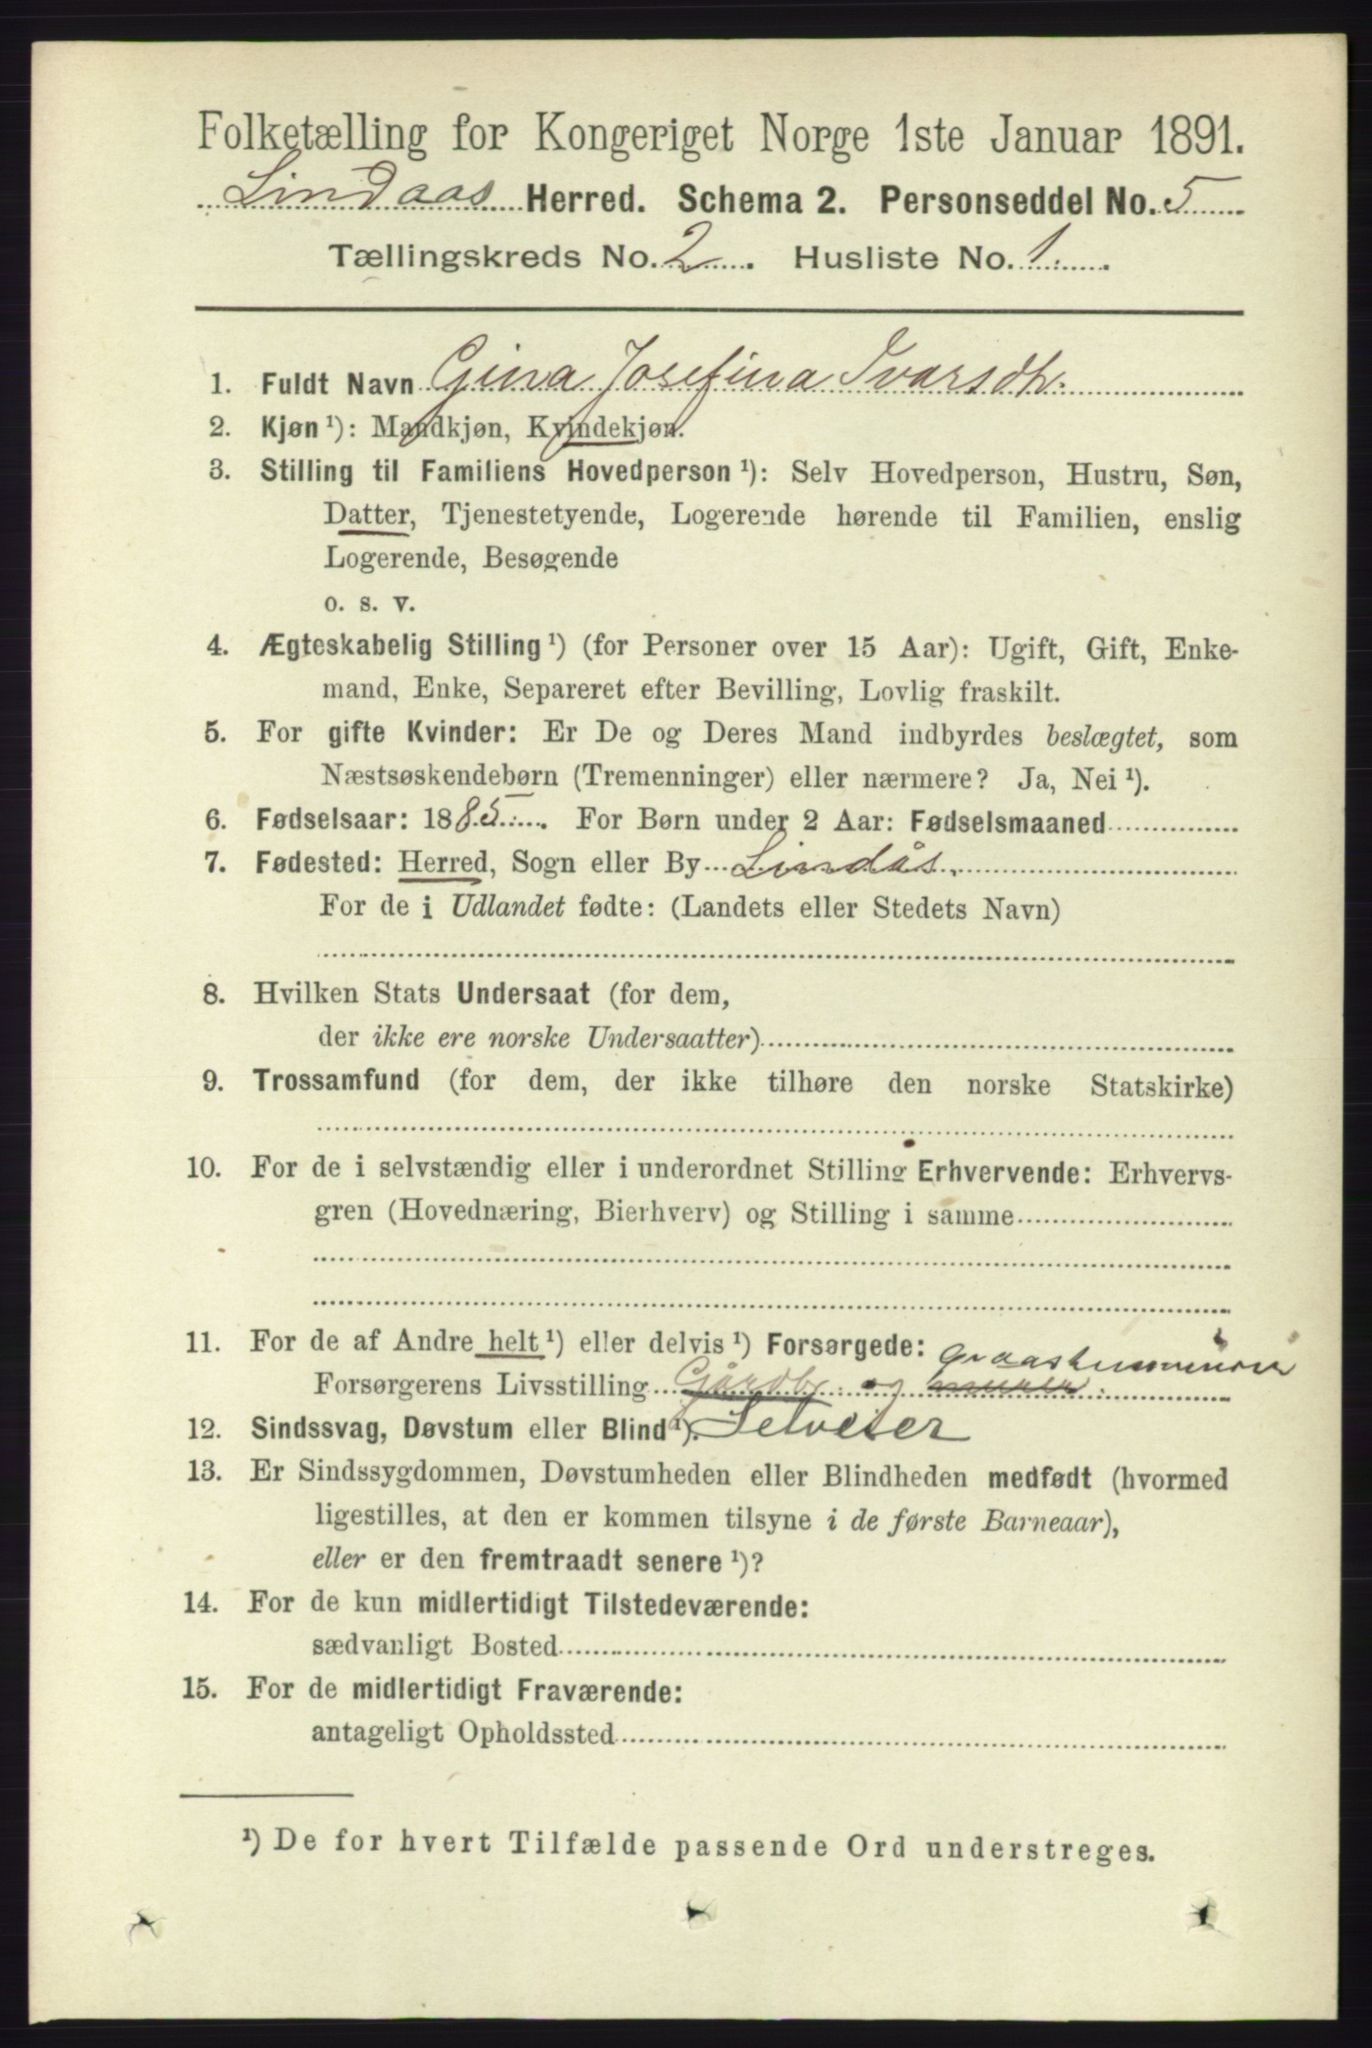 Folketælling for Kongeriget Norge 1ste Januar 1891.
Lindaas Herred. Schema 2. Personseddel No. 5
Tællingskreds No. 2. Husliste No. 1.
1. Fuldt Navn Gina Josefina Ivarsdtr.
2. Kjøn ¹): Mandkjøn, Kvindekjøn.
3. Stilling til Familiens Hovedperson ¹): Selv Hovedperson, Hustru, Søn,
Datter, Tjenestetyende, Logerende hørende til Familien, enslig
Logerende, Besøgende
o. s. v.
4. Ægteskabelig Stilling ¹) (for Personer over 15 Aar): Ugift, Gift, Enke-
mand, Enke, Separeret efter Bevilling, Lovlig fraskilt.
5. For gifte Kvinder: Er De og Deres Mand indbyrdes beslægtet, som
Næstsøskendebørn (Tremenninger) eller nærmere? Ja, Nei ¹).
6. Fødselsaar: 1885. For Børn under 2 Aar: Fødselsmaaned
7. Fødested: Herred, Sogn eller By Lindås.
For de i Udlandet fødte: (Landets eller Stedets Navn)
8. Hvilken Stats Undersaat (for dem,
der ikke ere norske Undersaatter)
9. Trossamfund (for dem, der ikke tilhøre den norske Statskirke)
10. For de i selvstændig eller i underordnet Stilling Erhvervende: Erhvervs-
gren (Hovednæring, Bierhverv) og Stilling i samme
11. For de af Andre helt ¹) eller delvis ¹) Forsørgede:
Forsørgerens Livsstilling Gårdbr. og murer.
12. Sindssvag, Døvstum eller Blind ¹). Selveier
13. Er Sindssygdommen, Døvstumheden eller Blindheden medfødt (hvormed
ligestilles, at den er kommen tilsyne i de første Barneaar),
eller er den fremtraadt senere ¹)?
14. For de kun midlertidigt Tilstedeværende:
sædvanligt Bosted
15. For de midlertidigt Fraværende:
antageligt Opholdssted
¹) De for hvert Tilfælde passende Ord understreges.